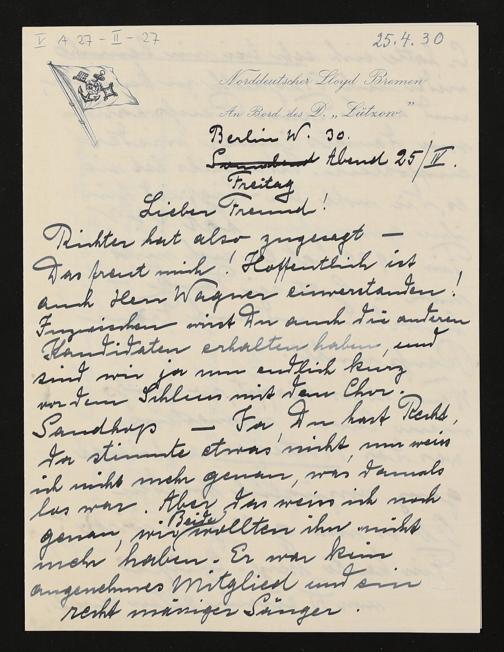 V A 27 - II - 27
25.4.30
Norddeutscher Lloyd Bremen
An Bord des D. „Lützow"
Berlin W. 30.
Sonnabend Abend 25/IV.
Freitag
Lieber Freund!
Richter hat also zugesagt —
Das freut mich! Hoffentlich ist
auch Herr Wagner einverstanden!
Inzwischen wirst Du auch die anderen
Kandidaten erhalten haben, und
sind wir ja nun endlich kurz
vor dem Schluss mit dem Chor.
Sandhop — Ja Du hast Recht,
da stimmte etwas nicht, nur weis
ich nicht mehr genau, was damals
los war. Aber, das weis ich noch
genau, wir Beide wollten ihn nicht
mehr haben. Er war kein
angenehmes Mitglied und ein
recht mässiger Sänger.